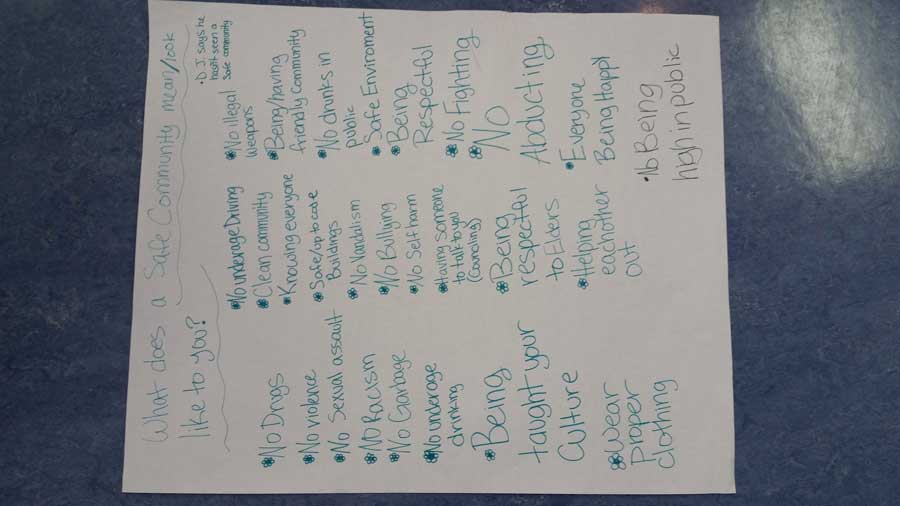 What does a Safe Community mean/look
like to you?
• D.J. says he
hasn't seen a
safe community
No Drugs
No violence
No Sexual assault
No Racism
No Garbage
No underage
drinking
Being
taught your
culture
Wear
proper
clothing
No underage Driving
Clean community
• Knowing everyone
Safe/up to code
Buildings
No Vandalism
No Bullying
No Self harm
Having someone
to talk to you
(Councling)
Being
respectful
to Elders
Helping
eachother
out
No illegal
weapons
Being/having
friendly community
No drunks in
public
Safe Enviroment
Being
Respectful
No Fighting
No
Abducting
Everyone
Being Happy!
• No Being
high in public